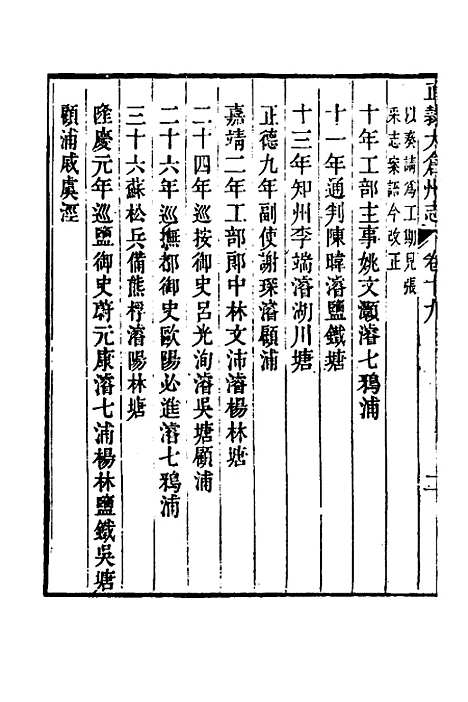 直隸太倉州志 卷十九 二十
以奏請爲工期見張
采志案語今改正
十年工部主事姚文灝濬七鴉浦
十一年通判陳暐濬鹽鐵塘
十三年知州李端濬湖川塘
正德九年副使謝琛濬顧浦
嘉靖二年工部郎中林文沛濬楊林塘
二十四年巡按御史呂光洵濬吳塘顧浦
二十六年巡撫都御史歐陽必進濬七鴉浦
三十六蘇松兵備熊桴濬陽林塘
隆慶元年巡鹽御史蔚元康濬七浦楊林鹽鐵吳塘
顧浦戚虞涇